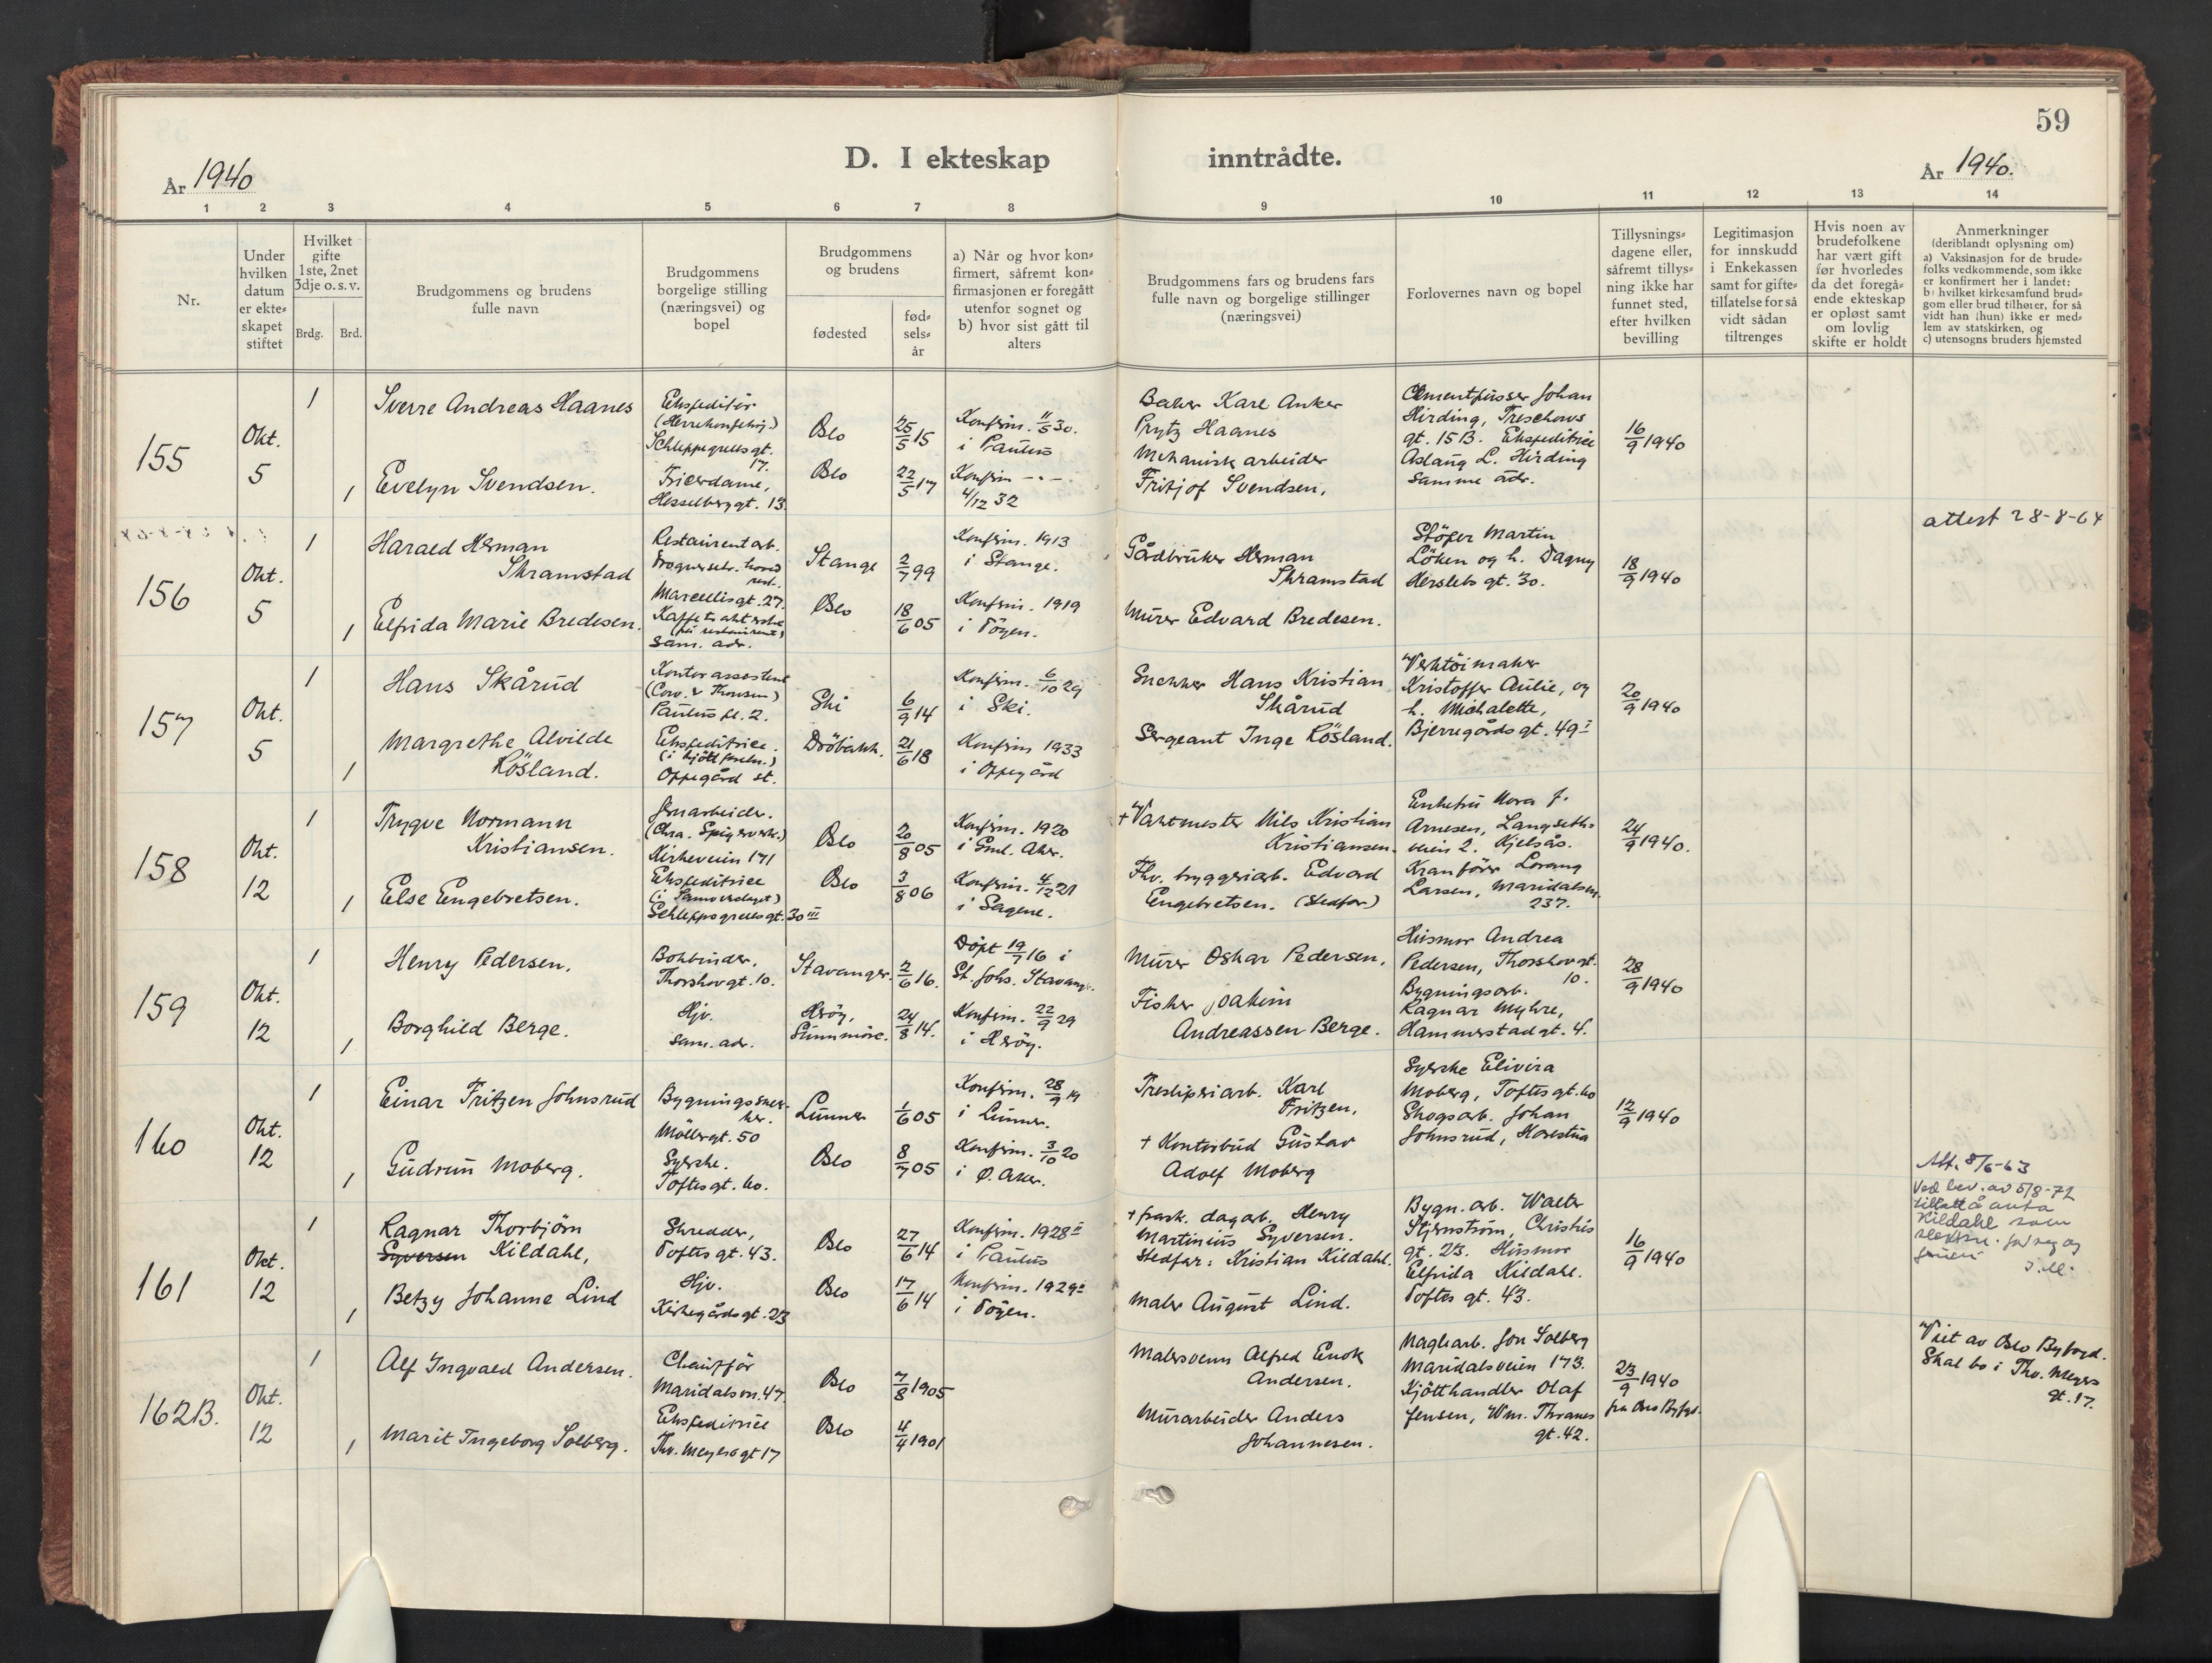 59
D. I ekteskap inntrådte.
År 1940
År 1940.
1 2 3 4 5 6 7 8 9 10 11 12 13 14
Nr.
Under
hvilken
datum
er ekte-
skapet
stiftet
Hvilket
gifte
1ste, 2net
3dje o. s. v.
Brdg. Brd.
Brudgommens og brudens
fulle navn
Brudgommens
borgelige stilling
(næringsvei) og
bopel
Brudgommens
og brudens
fødested
fød-
sels-
år
a) Når og hvor kon-
firmert, såfremt kon-
firmasjonen er foregått
utenfor sognet og
b) hvor sist gått til
alters
Brudgommens fars og brudens fars
fulle navn og borgelige stillinger
(næringsvei)
Forlovernes navn og bopel
Tillysnings-
dagene eller,
såfremt tillys-
ning ikke har
funnet sted,
efter hvilken
bevilling
Legitimasjon
for innskudd
i Enkekassen
samt for gifte-
tillatelse for så
vidt sådan
tiltrenges
Hvis noen av
brudefolkene
har vært gift
før hvorledes
da det foregå-
ende ekteskap
er opløst samt
om lovlig
skifte er holdt
Anmerkninger
(deriblandt oplysning om)
a) Vaksinasjon for de brude-
folks vedkommende, som ikke
er konfirmert her i landet:
b) hvilket kirkesamfund brud-
gom eller brud tilhører, for så
vidt han (hun) ikke er med-
lem av statskirken, og
c) utensogns bruders hjemsted
155
Okt.
5
1
1
Sverre Andreas Haanes
Evelyn Svendsen.
Ekspeditör
Schleppegrellsgt.
17.
Friserdame,
Hesselberggt. 13.
Oslo
Oslo
25/5 15
22/5 17
Konfirm. 11/5 30.
i Paulus
Konfirm -"-
4/12 32
Baker Karl Anker
Prytz Haanes
Mekanisk arbeider
Fritjof Svendsen,
Cementpusser Johan
Hirding, Treschows
gt. 15 B. Ekspeditrice
Aslaug L. Hirding
samme adr.
16/9 1940
156
Okt.
5
1
1
Harald Herman
Skramstad
Elfrida Marie Bredesen.
Restaurentarb.
Frognerseter. hoved
rest.
Marcellisgt. 27.
sam. adr.
Stange
Oslo
2/7 99
18/6 05
Konfirm. 1913
i Stange.
Konfirm. 1919
i Töyen.
Gårdbruker Herman
Skramstad
Murer Edvard Bredesen.
Stöper Martin
Löken og h. Dagny
Herslebs gt. 30.
18/9 1940
attest 28-8-64
157
Okt.
5
1
1
Hans Skårud
Margrethe Alvilde
Rösland.
Kontorassistent
Paulus pl. 2.
Ekspeditrice.
Oppegård st.
Ski
Dröbakk.
6/9 14
21/6 18
Konfirm. 6/10 29
i Ski.
Konfirm 1933
i Oppegård
Snekker Hans Kristian
Skårud
Sergeant Inge Rösland.
Verktöimaker
Kristoffer Aulie, og
h. Michalette,
Bjerregårdsgt. 49 I
20/9 1940
158
Okt.
12
1
1
Trygve Normann
Kristiansen.
Else Engebretsen.
Jernarbeider.
(Chra. Spigerverk.)
Kirkeveien 171
Ekspeditrice
Schleppegrellsgt. 30 III
Oslo
Oslo
20/8 05
3/8 06
Konfirm. 1920
i Gml. Aker.
Konfirm. 4/12 21
i Sagene.
+ Vaktmester Nils Kristian
Kristiansen.
Fhv. bryggeriarb. Edvard
Engebretsen. (Stedfar)
Enkefru Nora J.
Arnesen, Langseths-
veien 2. Kjelsås.
Kranförer Lorang
Larsen, Maridalsvn.
237.
24/9 1940.
159
Okt.
12
1
1
Henry Pedersen,
Borghild Berge.
Bokbinder,
Thorshovgt. 10.
Hjv.
sam. adr.
Stavanger.
Heröy,
Sunnmöre.
2/6 16.
24/8 14.
Döpt 19/7 16 i
St. Johs. Stavang.
Konfirm. 22/9 29
i Heröy.
Murer Oskar Pedersen,
Fisker Joakim
Andreassen Berge.
Husmor Andrea
Pedersen, Thorshovgt.
10.
Bygningsarb.
Ragnar Myhre,
Hammerstadgt. 4.
28/9 1940
160
Okt.
12
1
1
Einar Fritzen Johnsrud
Gudrun Moberg.
Bygningssnek-
ker.
Möllergt. 50
Syerske.
Toftesgt. 60.
Lunner
Oslo
1/6 05
8/7 05
Konfirm. 28/9 19
i Lunner.
Konfirm. 3/10 20
i Ö. Aker.
Tresliperiarb. Karl
Fritzen,
+ Kontorbud Gustav
Adolf Moberg
Syerske Elivira
Moberg, Toftesgt. 60
Skogsarb. Johan
Johnsrud, Harestua
12/9 1940
161
Okt.
12
1
1
Ragnar Thorbjörn
Syversen Kildahl,
Betzy Johanne Lind
Skredder,
Toftes gt. 43.
Hjv.
Kirkegårdsgt. 23
Oslo
Oslo
27/6 14
17/6 14
Konfirm. 1928 II
i Paulus
Konfirm. 1929 I
i Töyen.
+ frask. dagarb. Henry
Martinius Syversen.
Stedfar: Kristian Kildahl.
Maler August Lind.
Bygn. arb. Walter
Stjernström, Christies
gt. 23. Husmor
Elfrida Kildahl.
Toftes gt. 43.
16/9 1940
Att. 8/6-63
Ved bev. av 5/8-72
tillatt å anta
Kildahl som
slektsn. for seg og
162B.
Okt.
12
1
1
Alf Ingvald Andersen.
Marit Ingeborg Solberg.
Chaufför
Maridalsvn. 47.
Ekspeditrice
Thv. Meyersgt 17
Oslo
Oslo
7/8 1905
4/4 1901
Malersvenn Alfred Enok
Andersen.
Murarbeider Anders
Johannesen.
Maglearb. Jon Solberg
Maridalsveien 173.
Kjötthandler Olaf
Jensen, Wm. Thranes
gt. 42.
23/9 1940
fra Oslo Byfogd.
Viet av Oslo Byfogd.
Skal bo i Thv. Meyers
gt. 17.